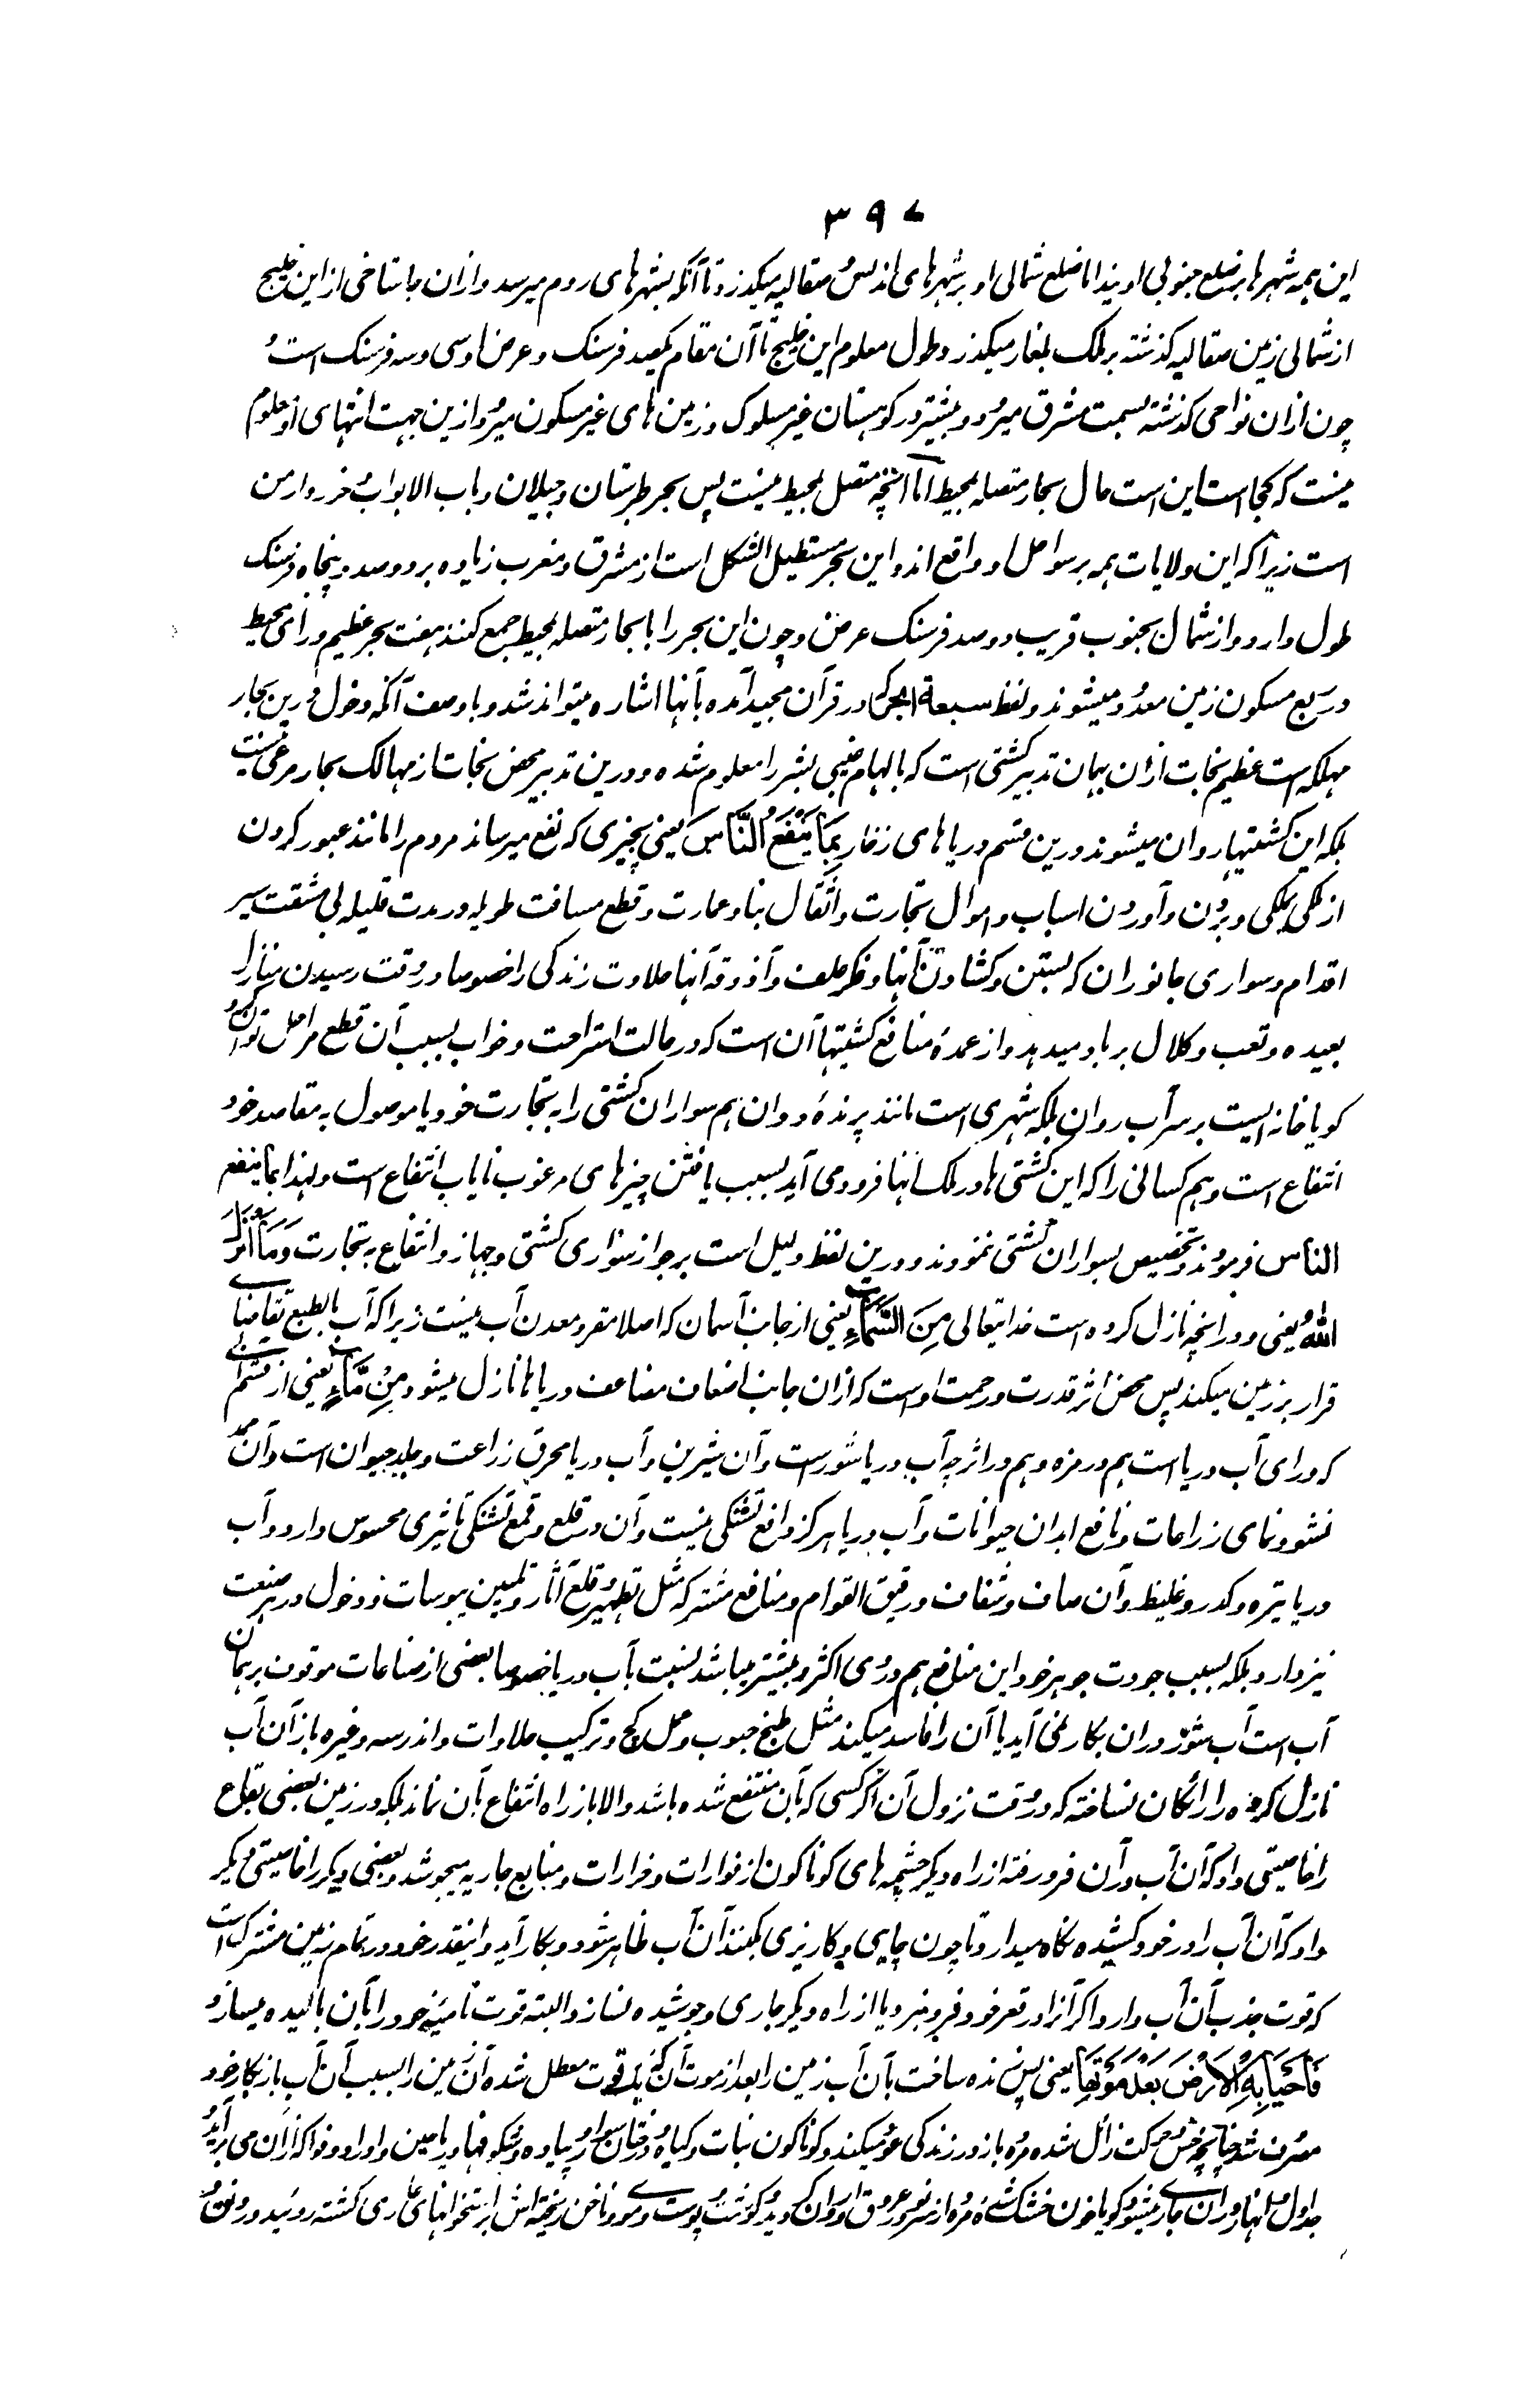 ۳۹۷
این همه شهرها بر ضلع جنوبی اویند اما ضلع شمالی او بر شهرهای اندلس و صقالیه میگذرد تا آنکه بشهرهای روم میرسد و ازان جا شاخی از این خلیج
از شمالی زمین صقالیه گذشته بر ملک بلغار میگذرد و طول معلوم این خلیج تا آن مقام یکصد فرسنک و عرض او سی و سه فرسنک است و
چون ازان نواحی گذشته بسمت مشرق میرود و بیشتر در کوهستان غیر مسلوک و زمین های غیر مسکون میرود ازین جهت انتهای او معلوم
نیست که کجا است این است حال بحار متصله بمحیط اما آنچه متصل بمحیط نیست پس بحر طبرستان و جیلان و باب الابواب و خزر و ارمن
است زیرا که این ولایات همه بر سواحل او واقع اند و این بحر مستطیل الشکل است از مشرق و مغرب زیاده بر دو صد و پنجاه فرسنک
طول دارد و از شمال بجنوب قریب دو صد فرسنک عرض و چون این بحر را با بحار متصله بمحیط جمع کنند هفت بحر عظیم ورای محیط
در ربع مسکون زمین معدود میشوند و لفظ سبعة ابحر که در قرآن مجید آمده بآنها اشاره میتواند شد و با وصف آنکه دخول درین بحار
مهلکه است عظیم نجات ازان بهمان تدبیر کشتی است که بالهام غیبی بشر را معلوم شده و درین تدبیر محض نجات از مهالک بحار مرعی نیست
بلکه این کشتیها روان میشوند درین قسم دریاهای زخار بِمَا یَنْفَعُ النَّاسَ یعنی بچیزی که نفع میرساند مردم را مانند عبور کردن
از ملکی بملکی و بردن و آوردن اسباب و اموال تجارت و اثقال بنا و عمارت و قطع مسافت طویله در مدت قلیله بی مشقت سیر
اقدام و سواری جانوران که بستن و کشادن آنها و فکر علف و آذوقه آنها حلاوت زندگی را خصوصا در وقت رسیدن منازل
بعیده و تعب و کلال بر باد میدهد و از عمدۀ منافع کشتیها آن است که در حالت استراحت و خواب بسبب آن قطع مراحل توان کرد
گویا خانه ایست بر سر آب روان بلکه شهری است مانند پرندۀ دوان هم سواران کشتی را به تجارت خود یا موصول به مقاصد خود
انتفاع است و هم کسانی را که این کشتی ها در ملک آنها فرود می آید بسبب یافتن چیزهای مرغوب نایاب انتفاع است و لهذا بما ینفع
الناس فرمودند و تخصیص بسواران کشتی ننمودند و درین لفظ دلیل است بر جواز سواری کشتی و جهاز و انتفاع به تجارت وَمَا اَنْزَلَ
اللهُ یعنی و در آنچه نازل کرده است خدا یتعالی مِنَ السَّمَاءِ یعنی از جانب آسمان که اصلا مقر و معدن آب نیست زیرا که آب بالطبع تقاضای
قرار بر زمین میکند پس محض اثر قدرت و رحمت اوست که ازان جانب اضعاف مضاعف دریاها نازل میشود مِنْ مَّاءٍ یعنی از قسم آبی
که ورای آب دریا است هم در مزه و هم در اثر چه آب دریا شور است و آن شیرین و آب دریا محرق زراعت و جلد حیوان است و آن ممد
نشو و نمای زراعات و نافع ابدان حیوانات و آب دریا هرگز دافع تشنگی نیست و آن در قلع و قمع تشنگی تاثیری محسوس دارد و آب
دریا تیره و کدر و غلیظ و آن صاف و شفاف و رقیق القوام و منافع مشترکه مثل تطهیر و قلع آثار و تلیین یبوسات و دخول در هر صنعت
نیز دارد بلکه بسبب جودت جوهر خود این منافع هم در وی اکثر و بیشتر میباشد نسبت بآب دریا خصوصا بعضی از صناعات موقوف بر همان
آب است آب شور دران بکار نمی آید یا آن را فاسد میکند مثل طبخ حبوب و عمل گچ و ترکیب حلاوات و اندرسه و غیره باز آن آب
نازل کرده را رائگان نساخته که در وقت نزول آن اگر کسی که بآن منتفع شده باشد والا باز راه انتفاع بآن نماند بلکه در زمین بعضی بقاع
را خاصیتی داد که آن آب در آن فرو رفته از راه دیگر چشمه های گوناگون از فوارات و خرارات و منابع جاریه میجوشد و بعضی دیگر را خاصیتی دیگر
داد که آن آب را در خود کشیده نگاه میدارد تا چون چاهی و کاریزی بکنند آن آب ظاهر شود و بکار آید و اینقدر خود در تمام زمین مشترک است
که قوت جذب آن آب دارد اگر آنرا در قعر خود فرو نبرد یا از راه دیگر جاری و جوشیده نسازد البته قوت نامیۀ خود را بآن بالیده میسازد
فَاَحْیَا بِهِ الْاَرْضَ بَعْدَ مَوْتِهَا یعنی پس زنده ساخت بآن آب زمین را بعد از موت آن که قوت معطل شده آن زمین را بسبب آن آب باز بکار خود
مصرف شد چنانچه حس و حرکت زائل شده مرده باز در زندگی عود میکند و گوناگون نبات و گیاه و درختان سوار و پیاده و شگوفها و ریاحین و اوراد و فواکه ازان می برآید و
جداول و انهار دران جاری میشود گویا خون خشک شده مرده از سر نو در عروق او روان گردید و گوشت و پوست و مو و ناخن ریخته اش بر استخوانهای عاری گشته روئید و رونق و